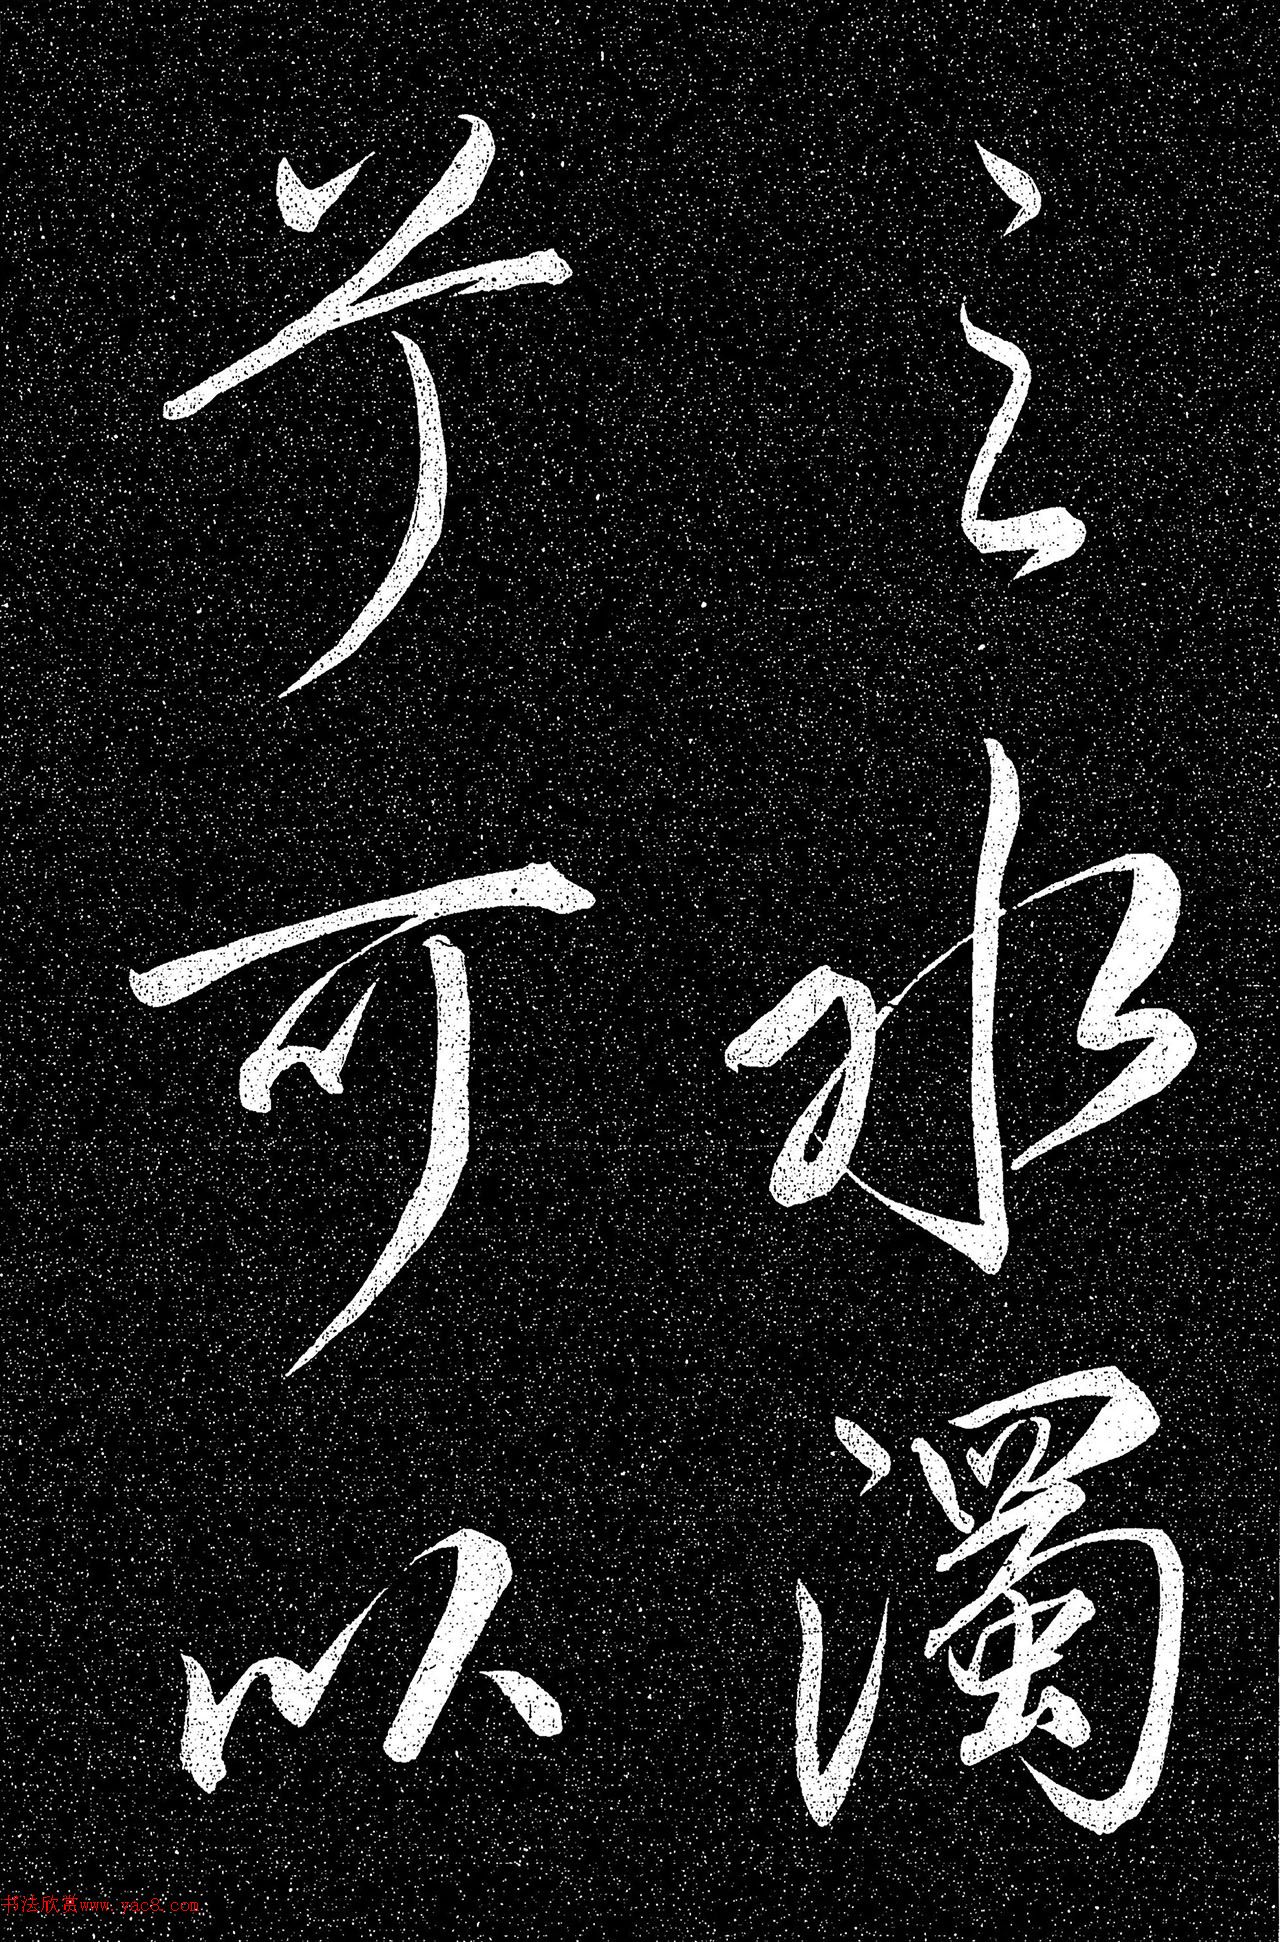 之水濁
兮可以
书法欣赏www.yac8.com